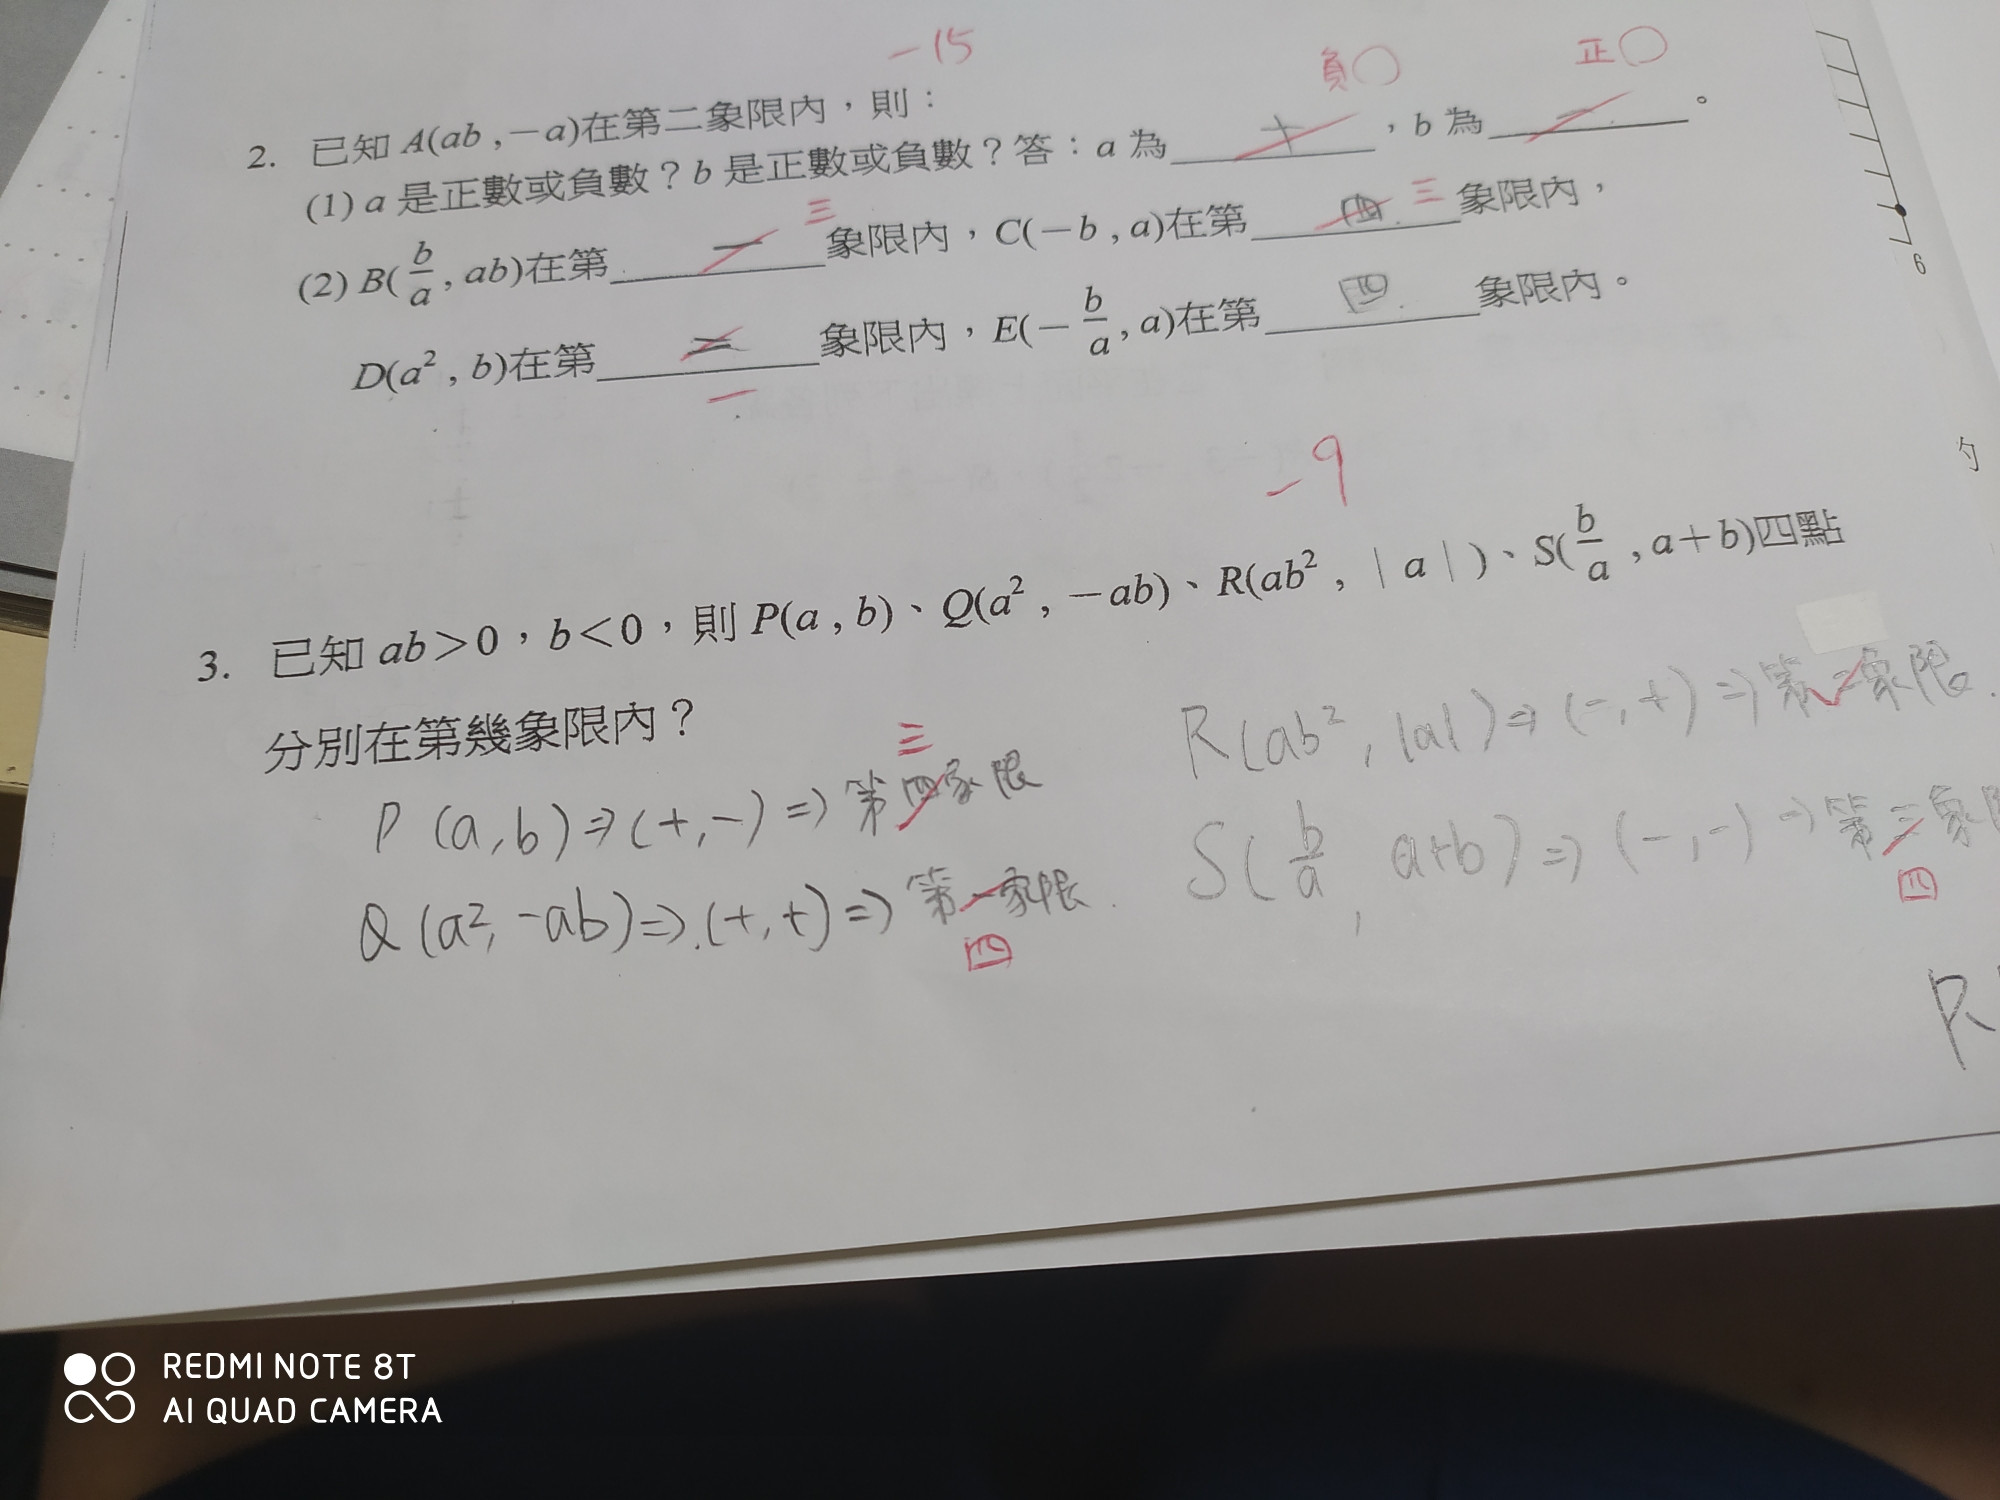 －15
負○ 正○
2. 已知 A(ab , －a)在第二象限內，則：
(1) a 是正數或負數？b 是正數或負數？答：a 為 ＋ ，b 為 － 。
三
(2) B(b/a , ab)在第 一 象限內，C(－b , a)在第 四 三 象限內，
D(a² , b)在第 二 象限內，E(－b/a , a)在第 四 象限內。
一
－9
3. 已知 ab＞0，b＜0，則 P(a , b)、Q(a² , －ab)、R(ab² , | a |)、S(b/a , a＋b)四點
分別在第幾象限內？
三
P (a, b) ⇒ (+, -) ⇒ 第四象限
Q (a², -ab) ⇒ (+, +) ⇒ 第一象限
四
R (ab², |a|) ⇒ (-, +) ⇒ 第二象限
S ( b/a , a+b) ⇒ (-, -) ⇒ 第三象限
四
R
6
勺
REDMI NOTE 8T
AI QUAD CAMERA